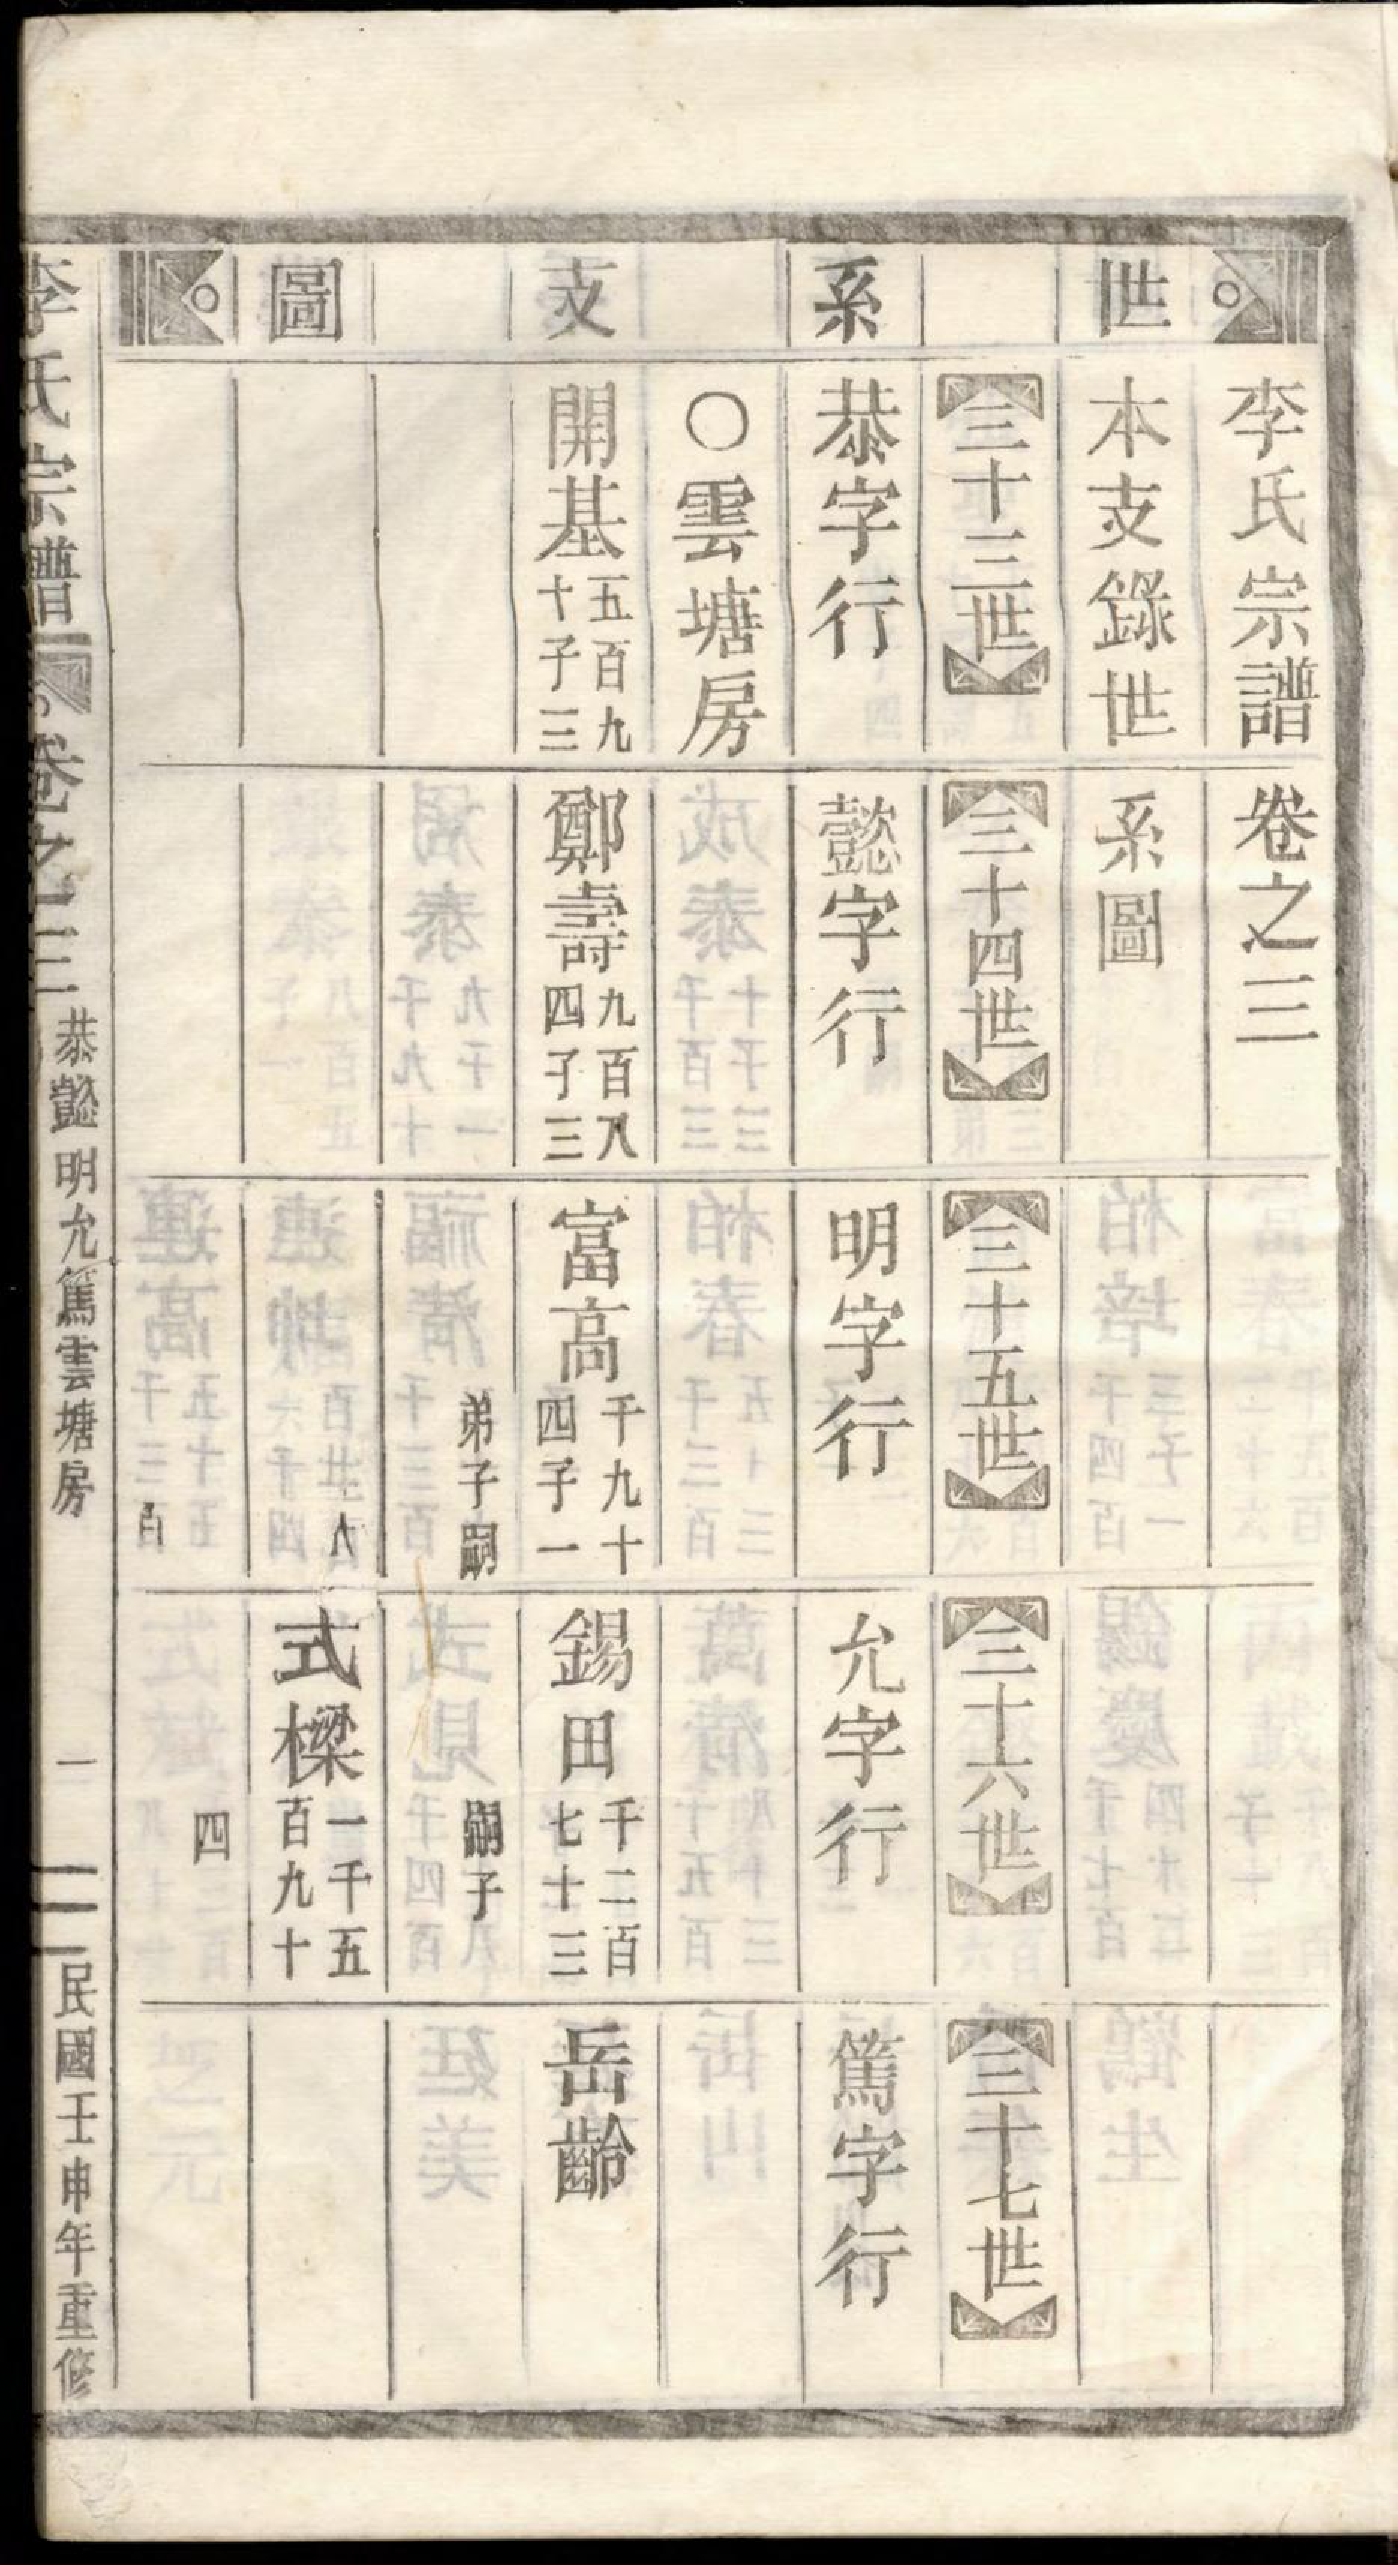 世系支圖
李氏宗譜 卷之三
本支錄世系圖
三十三世 三十四世 三十五世 三十六世 三十七世
恭字行 懿字行 明字行 允字行 篤字行
○雲塘房
開基 五百九十子三
鄭壽 九百八四子三
富高 千九十四子一
錫田 千二百七十三
岳齡
弟子嗣
嗣子
式樑 一千五百九十
四
李氏宗譜 卷之三 恭懿明允篤雲塘房 一 民國壬申年重修